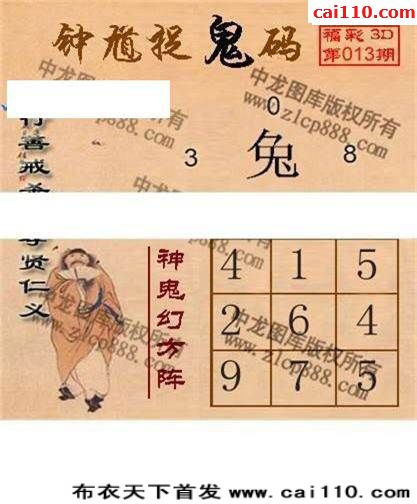 cai110.com
钟馗捉鬼码
福彩 3D
第013期
中龙图库版权所有
www.zlcp888.com
0
3 兔 8
行善戒
尊贤仁义
神鬼幻方阵
4 1 5
2 6 4
9 7 5
中龙图库版权所有
www.zlcp888.com
布衣天下首发 www.cai110.com